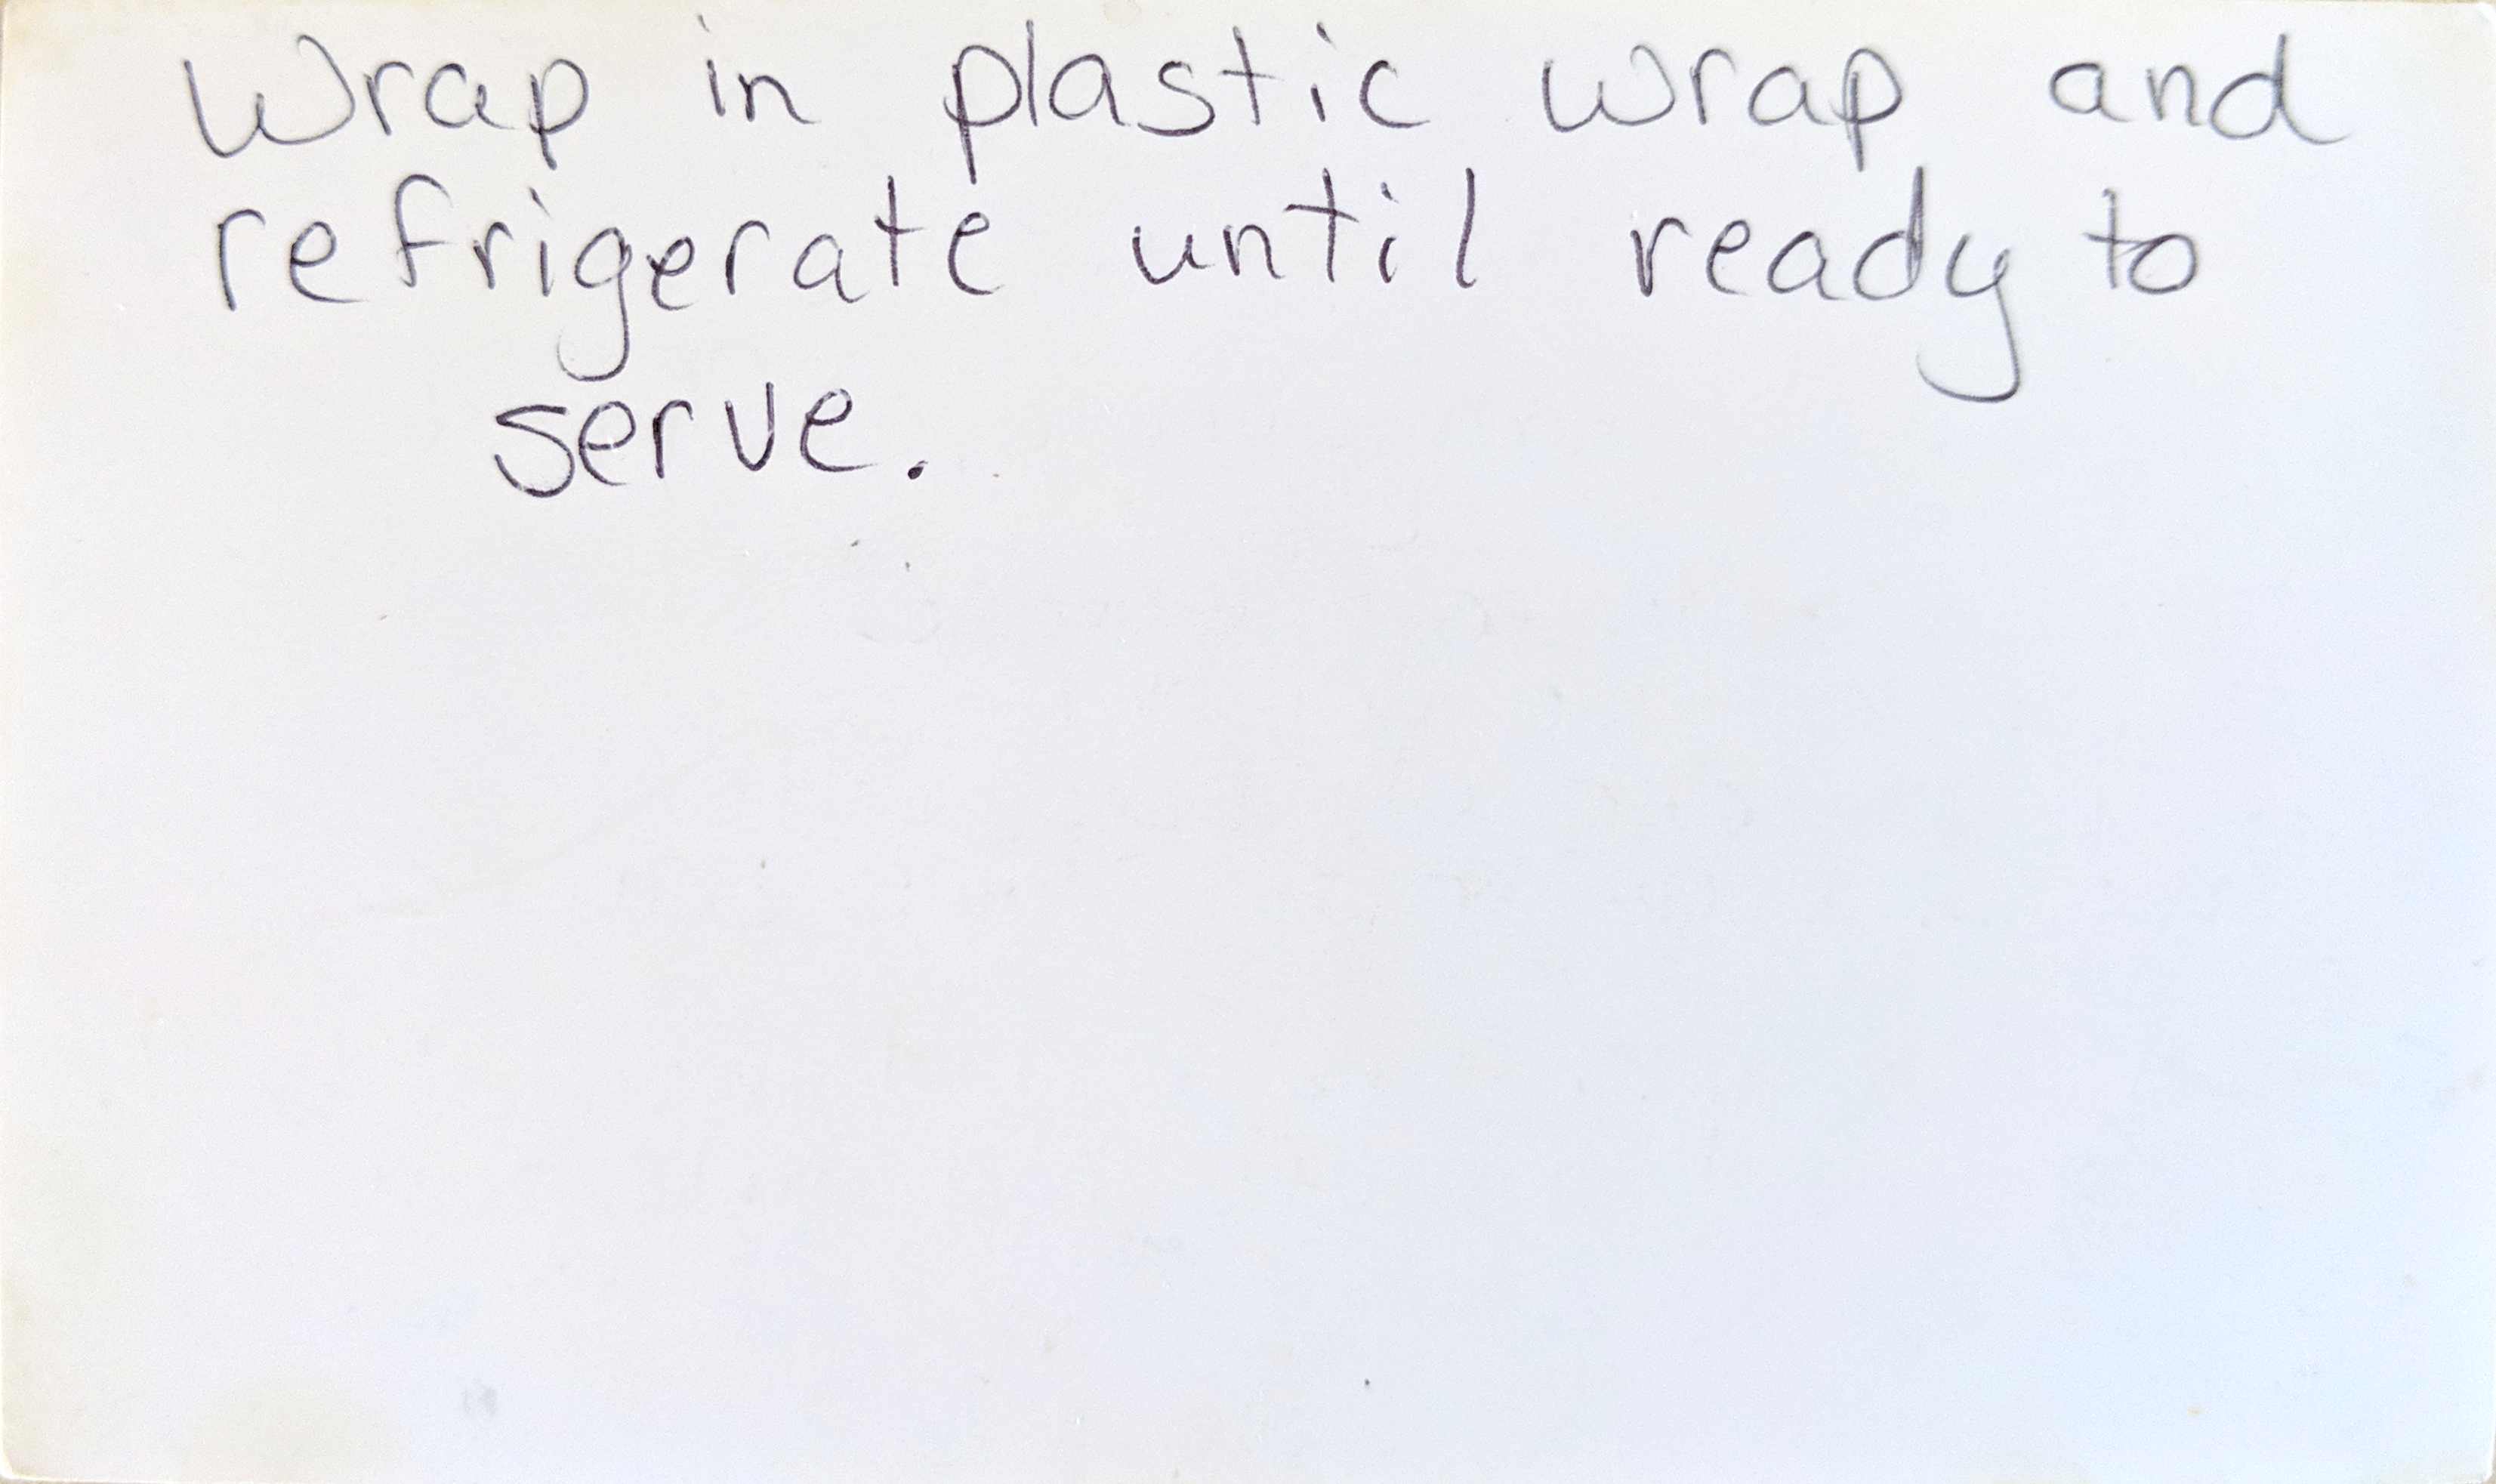 Wrap in plastic wrap and
refrigerate until ready to
serve.